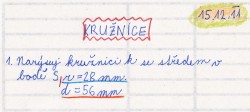 15.12.11
KRUŽNICE
1. Narýsuj kružnici k se středem v
bodě S, r = 28 mm.
d = 56 mm